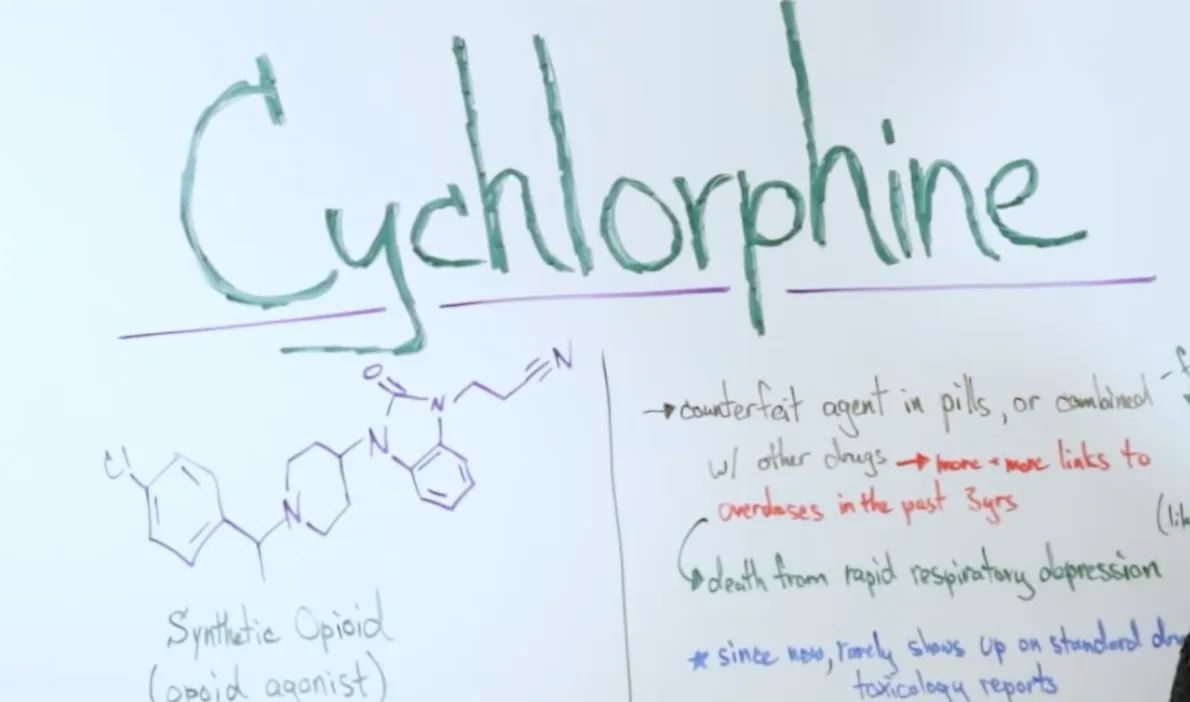 Cychlorphine
O
N
N
N
Cl
N
Synthetic Opioid
(opoid agonist)
→ counterfeit agent in pills, or combined
w/ other drugs → more + more links to
overdoses in the past 3yrs
death from rapid respiratory depression
* since new, rarely shows up on standard
toxicology reports